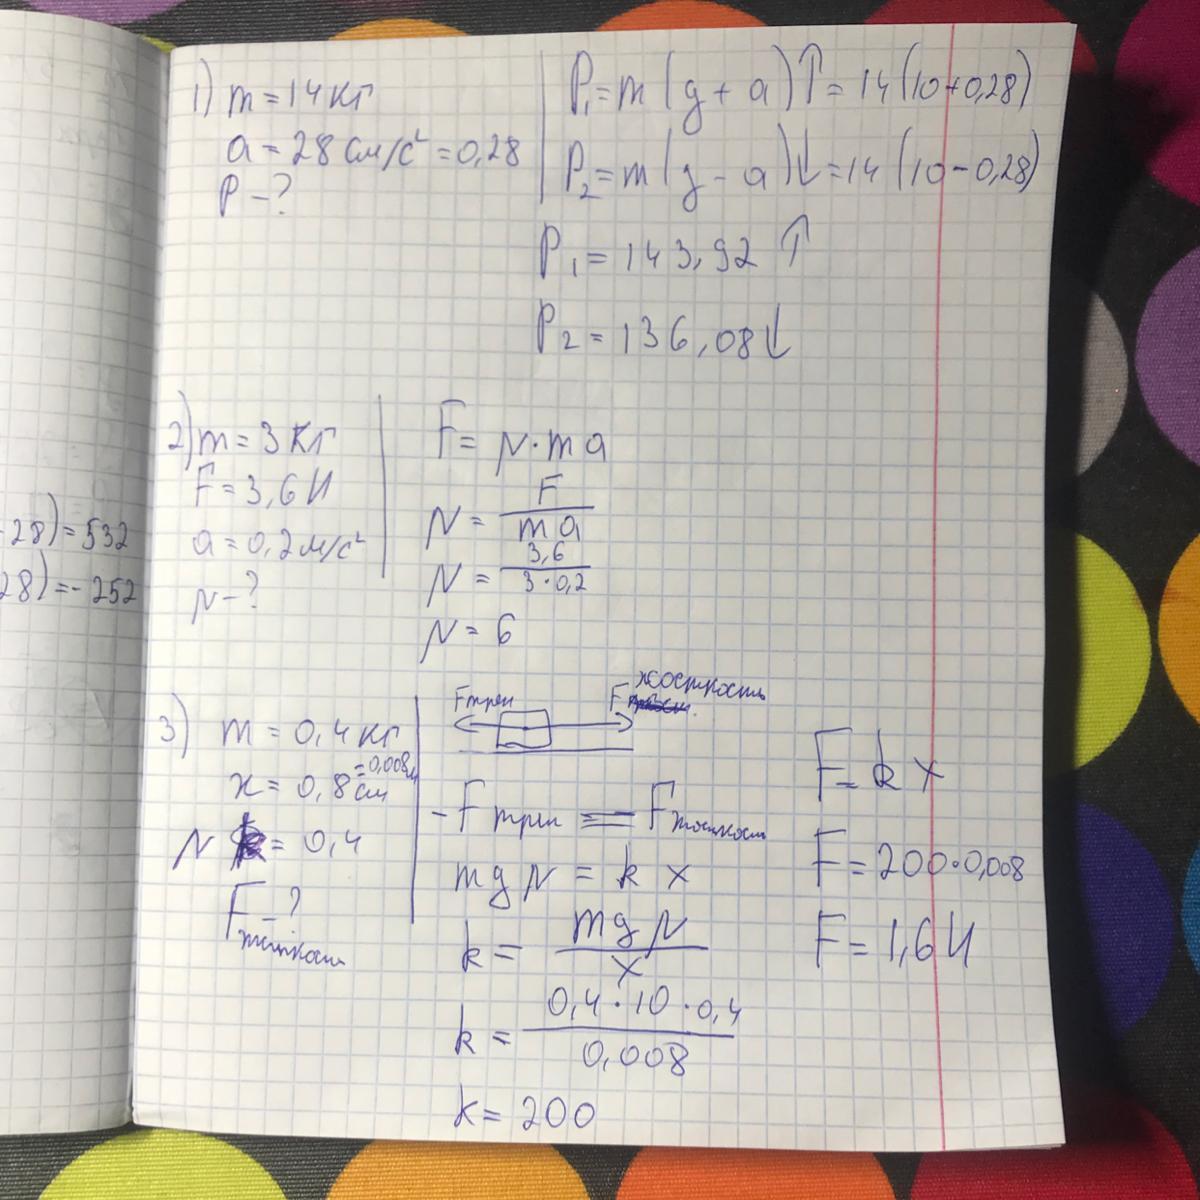 28)=532
28)=-252
1) m=14кг
a=28см/с²=0,28
P-?
P₁=m(g+a)↑=14(10+0,28)
P₂=m(g-a)↓=14(10-0,28)
P₁=143,92↑
P₂=136,08↓
2) m=3кг
F=3,6Н
a=0,2м/с²
μ-?
F=μ·ma
μ=F/ma
μ=3,6/3·0,2
μ=6
3) m=0,4кг
x=0,8см=0,008м
μ=0,4
F-?
жосткость
Fтрен
F жосткость
-Fтрен=Fжосткост
mgμ=kx
k=mgμ/x
k=0,4·10·0,4/0,008
k=200
F=kx
F=200·0,008
F=1,6Н